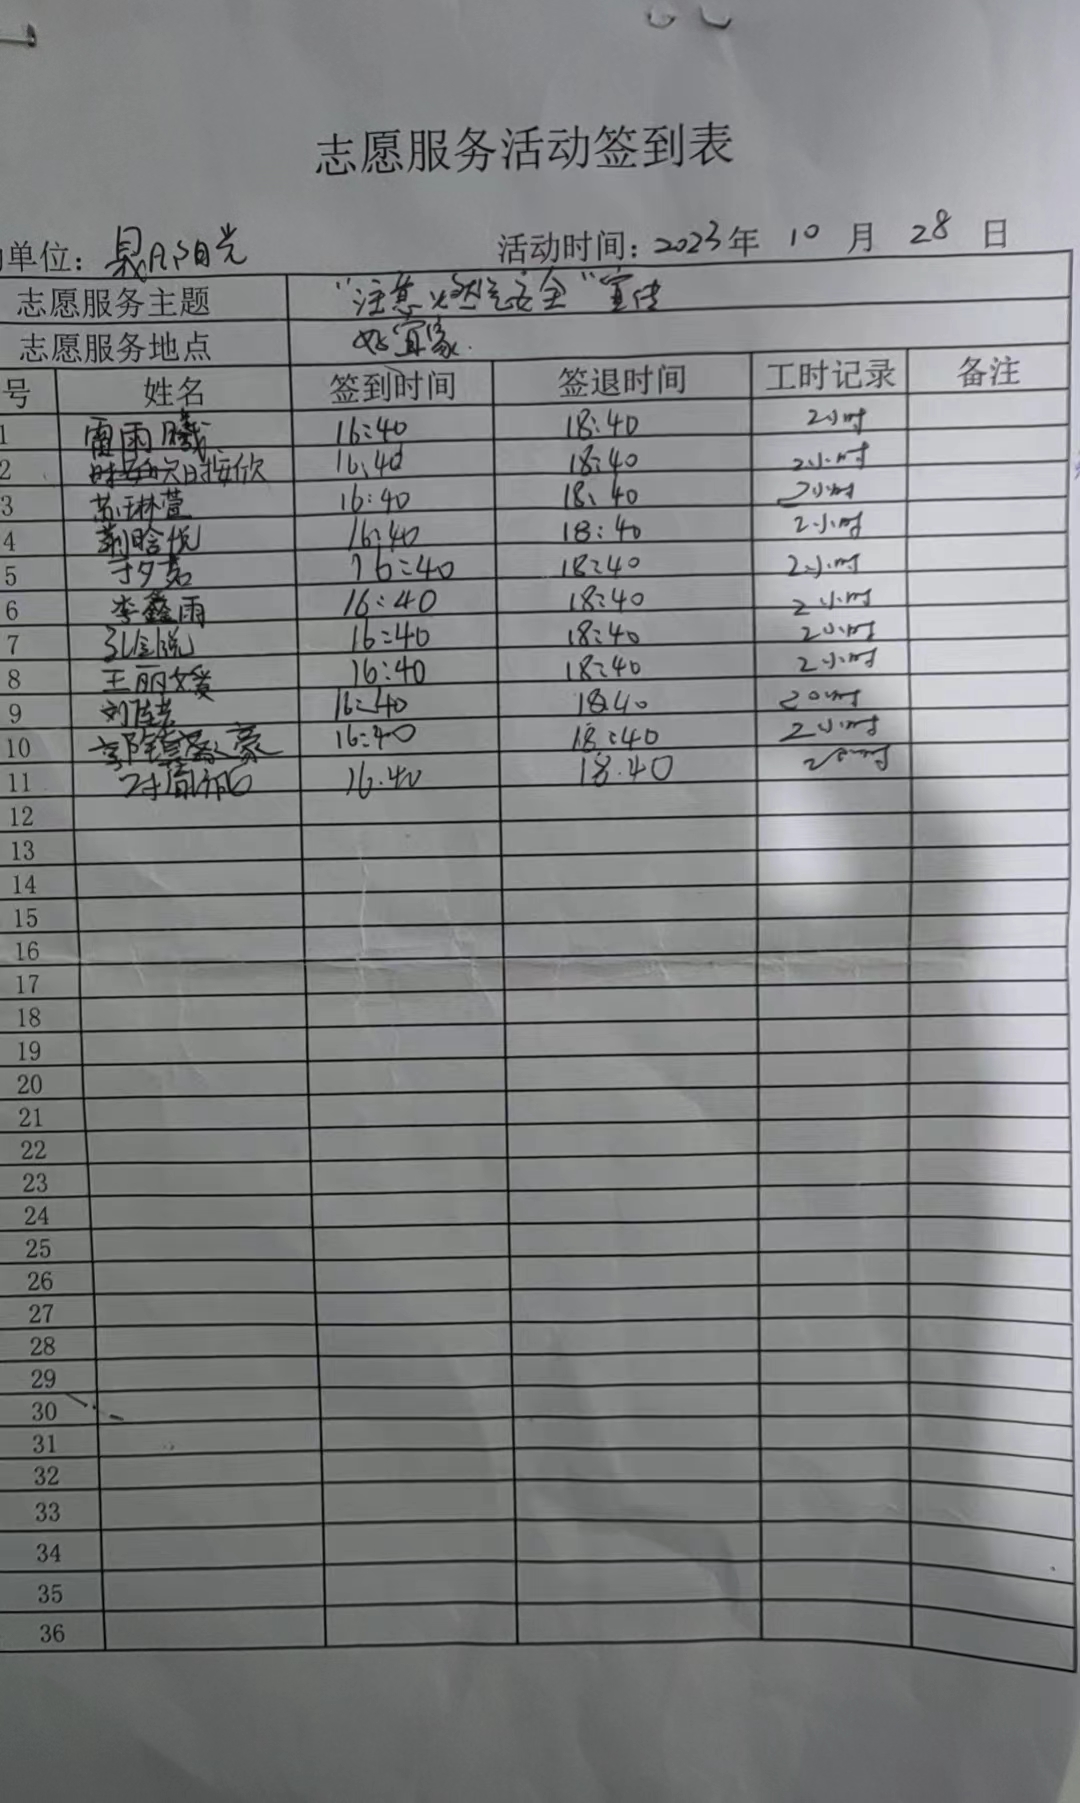 志愿服务活动签到表
单位：晟阳光 活动时间：2023年 10 月 28 日
志愿服务主题 "注意燃气安全"宣传
志愿服务地点 好宜家.
号 姓名 签到时间 签退时间 工时记录 备注
1 雷雨曦 16:40 18:40 2小时
2 16:40 18:40 2小时
3 苏琳萱 16:40 18:40 2小时
4 荆晗悦 16:40 18:40 2小时
5 于夕茗 16:40 18:40 2小时
6 李鑫雨 16:40 18:40 2小时
7 16:40 18:40 2小时
8 王丽媛 16:40 18:40 2小时
9 16:40 18:40 2小时
10 16:40 18:40 2小时
11 16.40 18.40 2小时
12
13
14
15
16
17
18
19
20
21
22
23
24
25
26
27
28
29
30
31
32
33
34
35
36